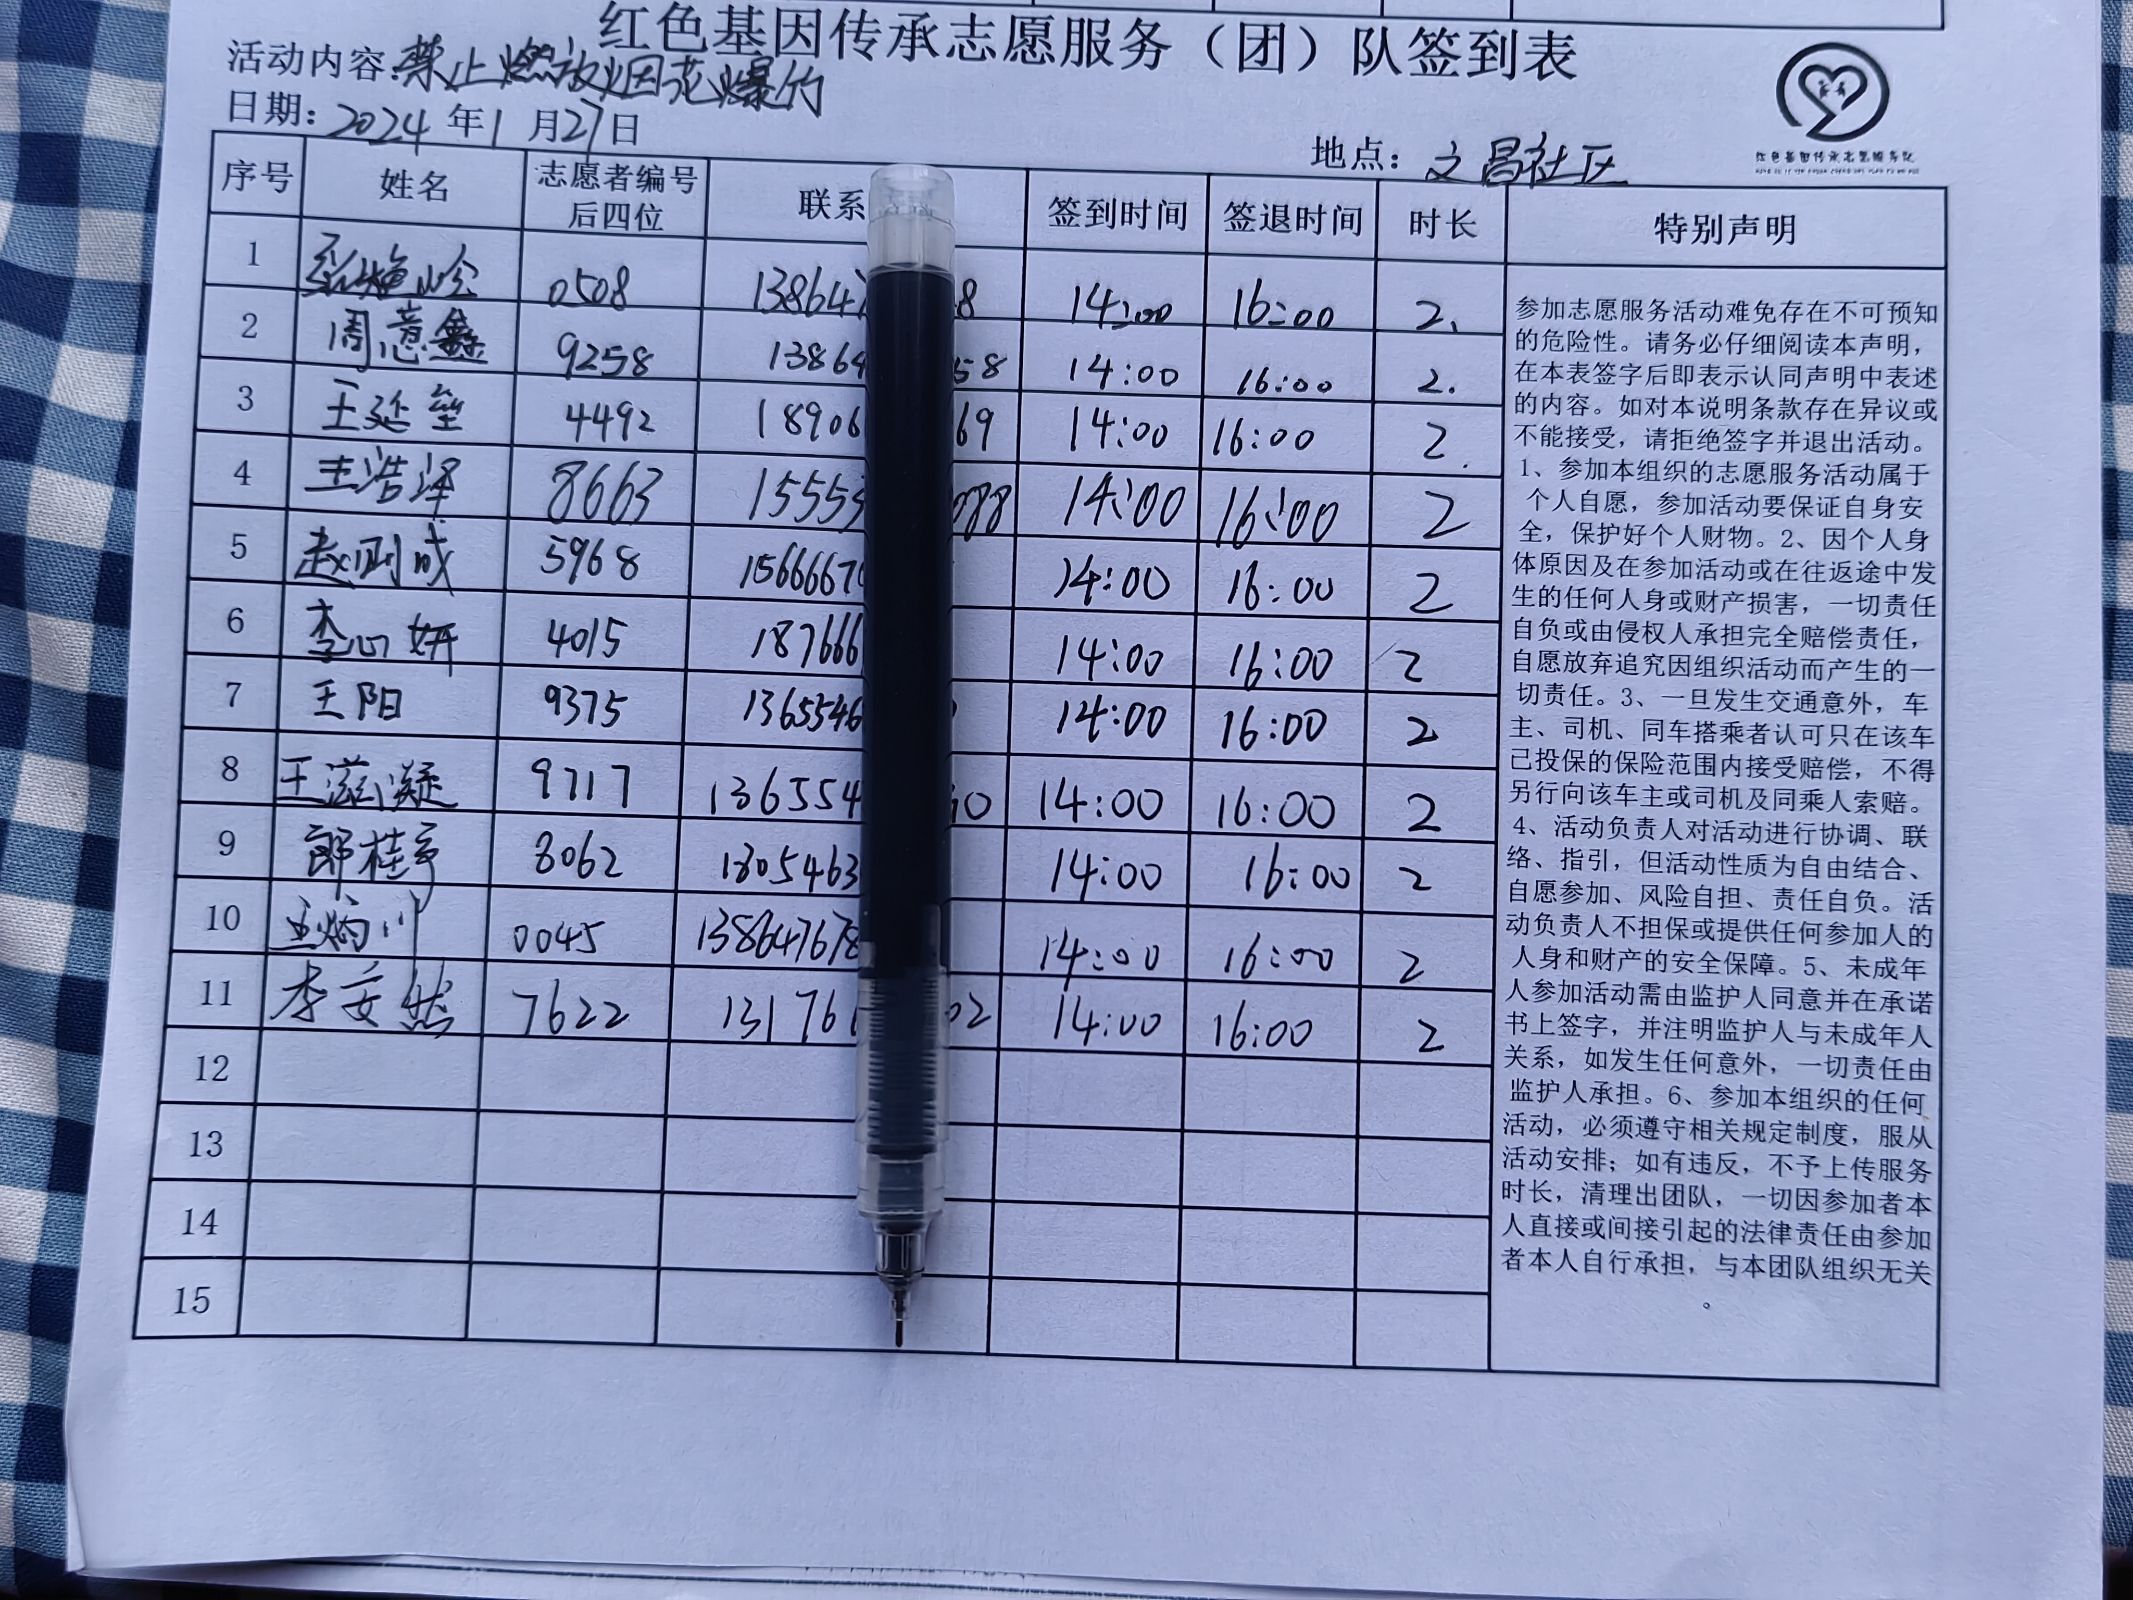 红色基因传承志愿服务（团）队签到表
活动内容：禁止燃放烟花爆竹
日期：2024年1月27日
地点：文昌社区
红色基因传承志愿服务队
序号 姓名 志愿者编号后四位 联系 签到时间 签退时间 时长 特别声明
1 0508 14:00 16:00 2.
2 周意鑫 9258 13864 58 14:00 16:00 2.
3 王延垒 4492 18906 69 14:00 16:00 2.
4 王浩泽 8663 15553 088 14:00 16:00 2
5 赵刚成 5968 1566667 14:00 16:00 2
6 李心妍 4015 187666 14:00 16:00 2
7 王阳 9375 1365546 14:00 16:00 2
8 王滋凝 9717 136554 0 14:00 16:00 2
9 郎桂亭 8062 1805463 14:00 16:00 2
10 王炳川 0045 138647678 14:00 16:00 2
11 李安然 7622 13176 02 14:00 16:00 2
12
13
14
15
参加志愿服务活动难免存在不可预知
的危险性。请务必仔细阅读本声明，
在本表签字后即表示认同声明中表述
的内容。如对本说明条款存在异议或
不能接受，请拒绝签字并退出活动。
1、参加本组织的志愿服务活动属于
个人自愿，参加活动要保证自身安
全，保护好个人财物。2、因个人身
体原因及在参加活动或在往返途中发
生的任何人身或财产损害，一切责任
自负或由侵权人承担完全赔偿责任，
自愿放弃追究因组织活动而产生的一
切责任。3、一旦发生交通意外，车
主、司机、同车搭乘者认可只在该车
已投保的保险范围内接受赔偿，不得
另行向该车主或司机及同乘人索赔。
4、活动负责人对活动进行协调、联
络、指引，但活动性质为自由结合、
自愿参加、风险自担、责任自负。活
动负责人不担保或提供任何参加人的
人身和财产的安全保障。5、未成年
人参加活动需由监护人同意并在承诺
书上签字，并注明监护人与未成年人
关系，如发生任何意外，一切责任由
监护人承担。6、参加本组织的任何
活动，必须遵守相关规定制度，服从
活动安排；如有违反，不予上传服务
时长，清理出团队，一切因参加者本
人直接或间接引起的法律责任由参加
者本人自行承担，与本团队组织无关
。